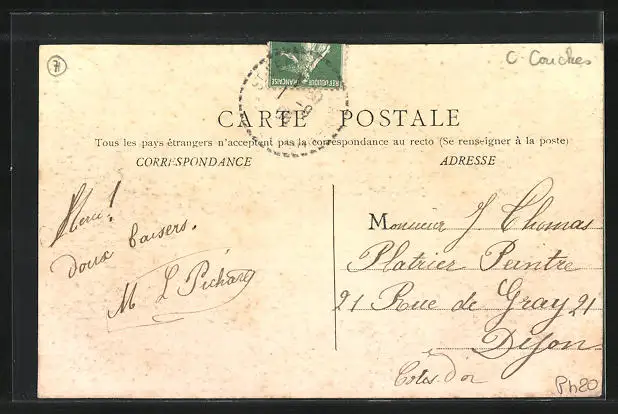 C. Couches
REPUBLIQUE FRANÇAISE
CARTE POSTALE
Tous les pays étrangers n'acceptent pas la correspondance au recto (Se renseigner à la poste)
CORRESPONDANCE
ADRESSE
Merci!
doux baisers.
M L Pichard
Monsieur J Thomas
Platrier Peintre
21 Rue de Gray 21
Dijon
Côte d'or
Ph20